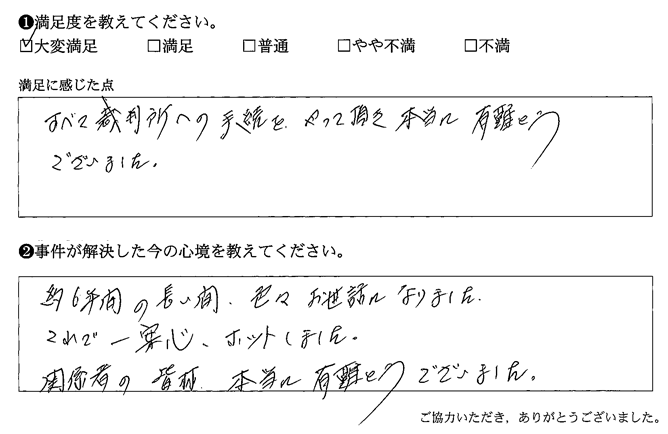 ❶満足度を教えてください。
☑大変満足 □満足 □普通 □やや不満 □不満
満足に感じた点
すべて裁判所への手続を、やって頂き本当に有難とう
ございました。
❷事件が解決した今の心境を教えてください。
約6年間の長い間、色々お世話になりました。
これで一安心、ホットしました。
関係者の皆様、本当に有難とうございました。
ご協力いただき、ありがとうございました。